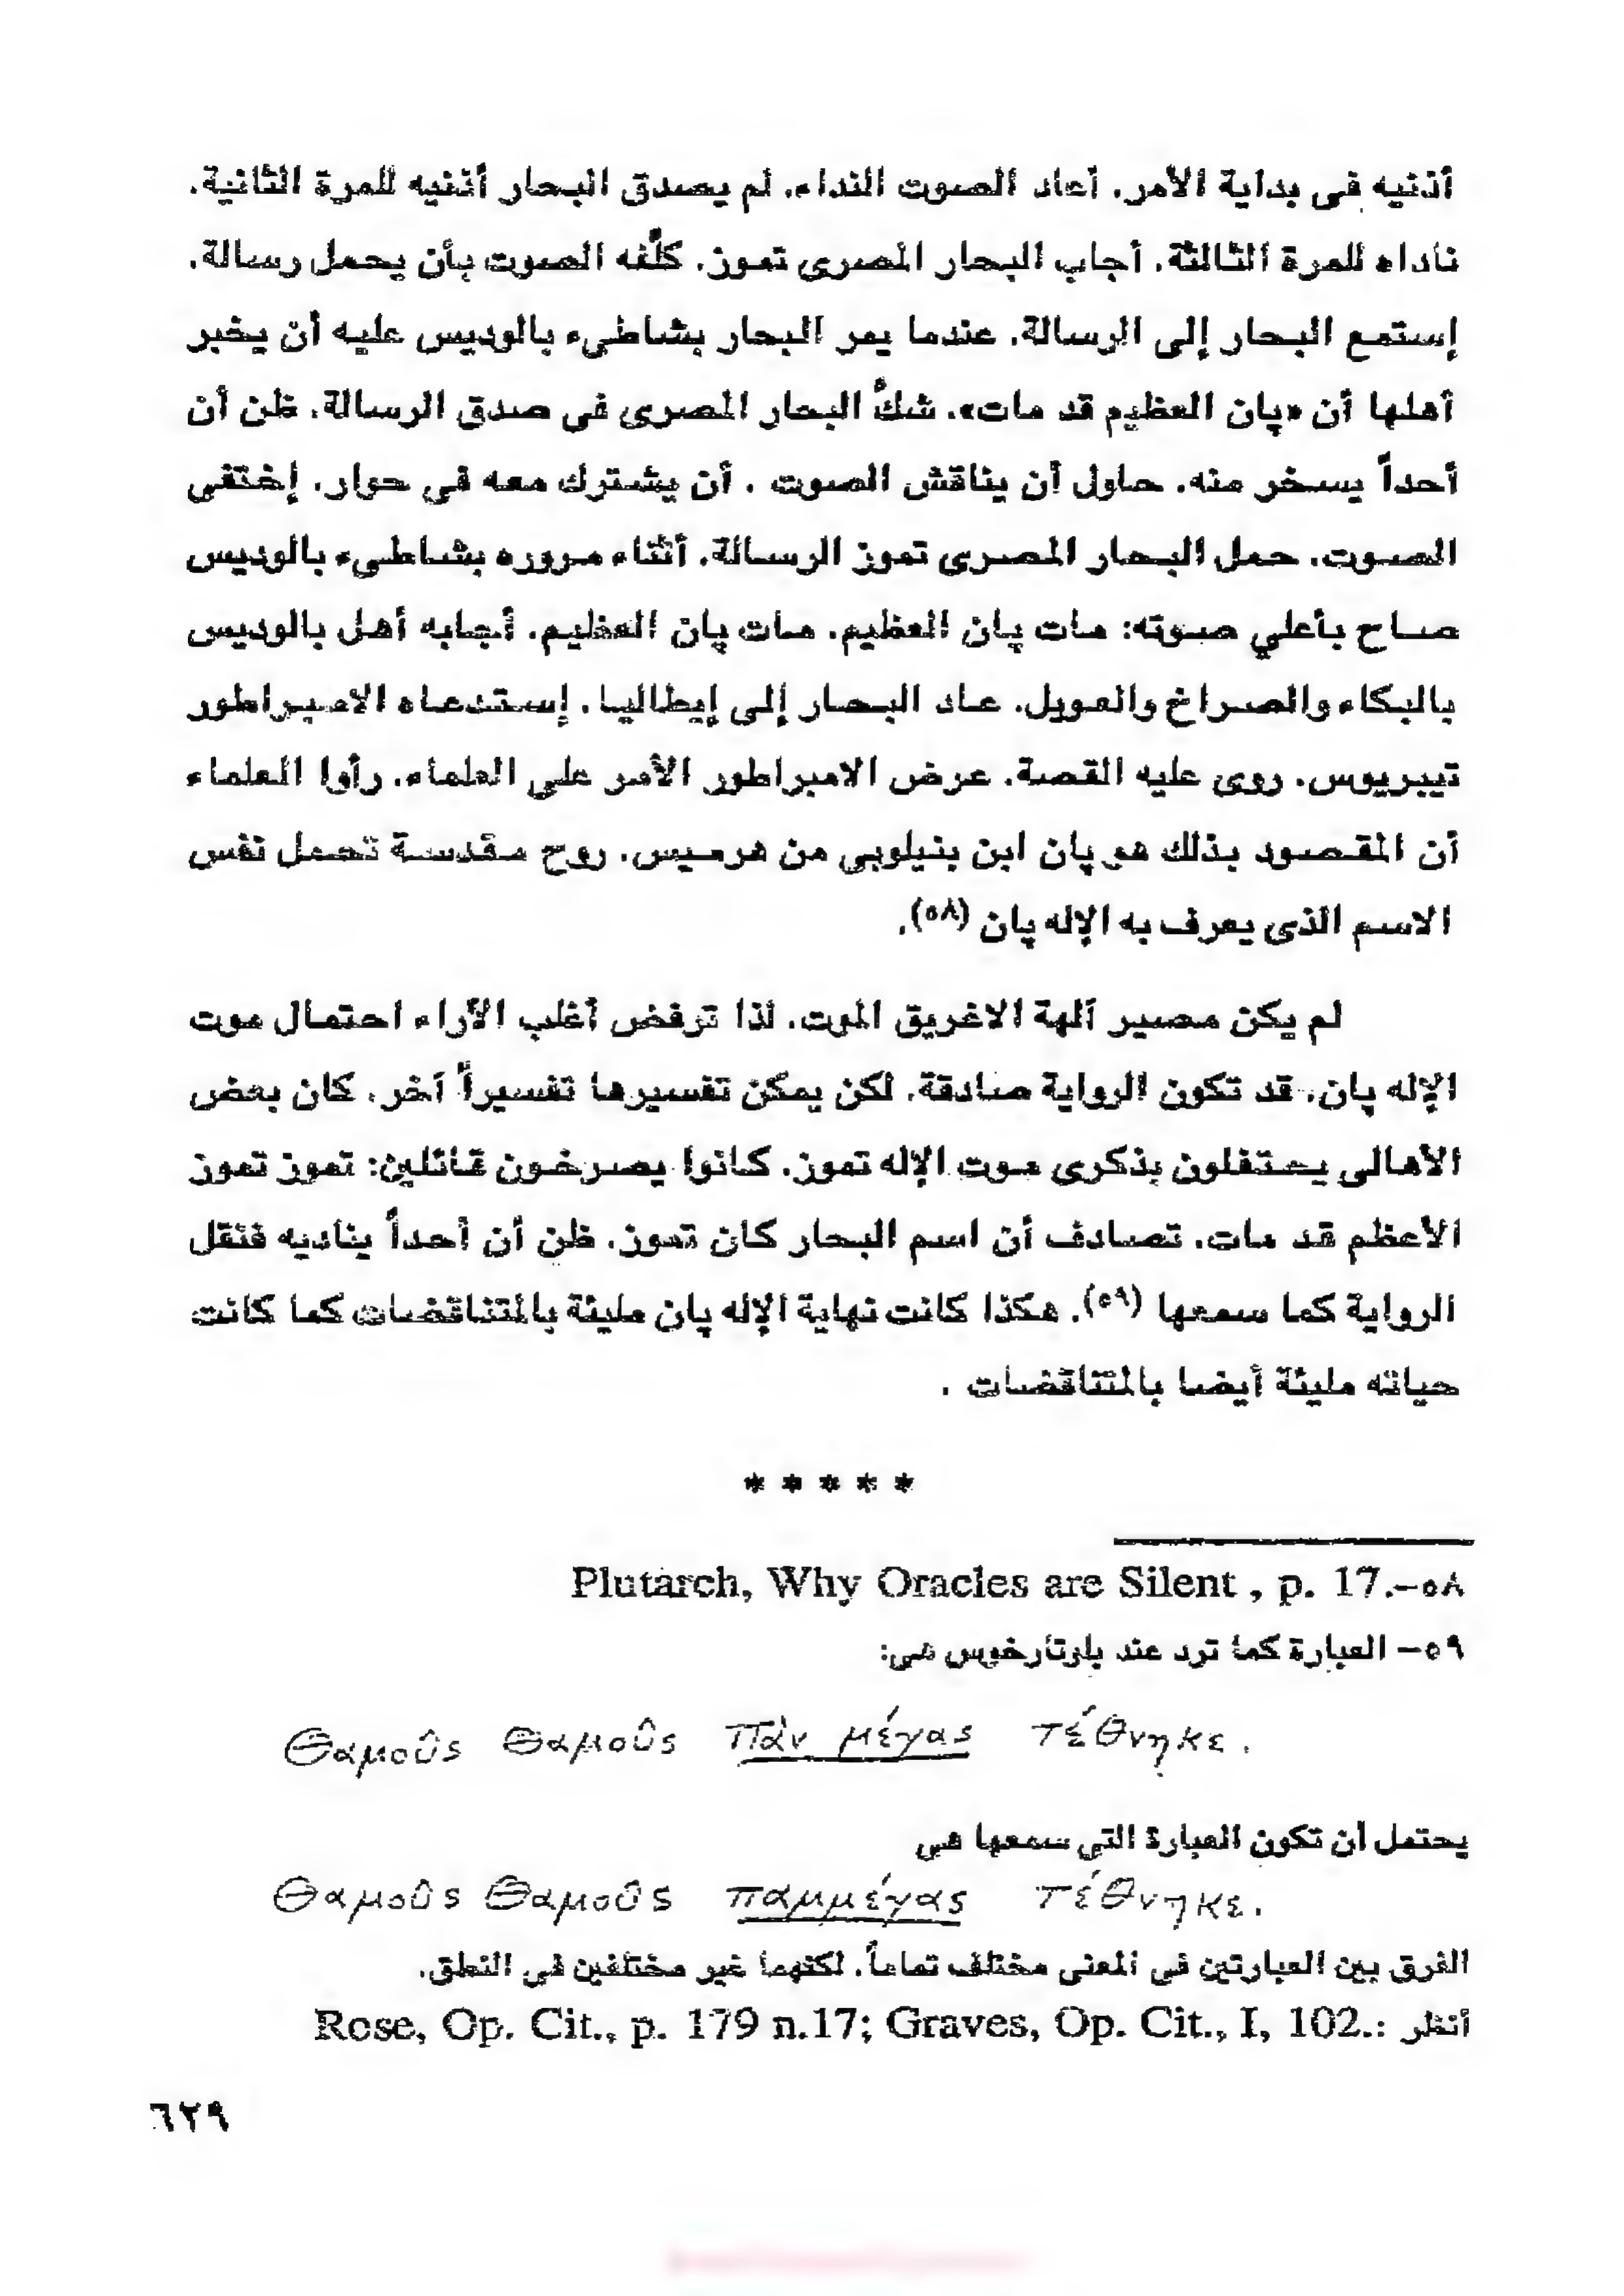 أذنيه فى بداية الأمر. أعاد الصوت النداء. لم يصدق البحار أذنيه للمرة الثانية.
ناداه للمرة الثالثة. أجاب البحار المصرى تموز. كلَّفه الصوت بأن يحمل رسالة.
إستمع البحار إلى الرسالة. عندما يمر البحار بشاطىء بالوديس عليه أن يخبر
أهلها أن «پان العظيم قد مات». شكَّ البحار المصرى فى صدق الرسالة. ظن أن
أحداً يسخر منه. حاول أن يناقش الصوت . أن يشترك معه في حوار. إختفي
الصوت. حمل البحار المصرى تموز الرسالة. أثناء مروره بشاطىء بالوديس
صاح بأعلي صوته: مات پان العظيم. مات پان العظيم. أجابه أهل بالوديس
بالبكاء والصراخ والعويل. عاد البحار إلى إيطاليا. إستدعاه الامبراطور
تيبريوس. روى عليه القصة. عرض الامبراطور الأمر علي العلماء. رأوا العلماء
أن المقصود بذلك هو پان ابن بنيلوبي من هرميس. روح مقدسة تحمل نفس
الاسم الذى يعرف به الإله پان (٥٨).
لم يكن مصير آلهة الاغريق الموت. لذا ترفض أغلب الأراء احتمال موت
الإله پان. قد تكون الرواية صادقة. لكن يمكن تفسيرها تفسيراً آخر. كان بعض
الأهالى يحتفلون بذكرى موت الإله تموز. كانوا يصرخون قائلين: تموز تموز
الأعظم قد مات. تصادف أن اسم البحار كان تموز. ظن أن أحداً يناديه فنقل
الرواية كما سمعها (٥٩). هكذا كانت نهاية الإله پان مليئة بالمتناقضات كما كانت
حياته مليئة أيضا بالمتناقضات .
* * * * *
٥٨-Plutarch, Why Oracles are Silent , p. 17.
٥٩- العبارة كما ترد عند بلوتارخوس هى:
Θαμοῦς Θαμοῦς Πὰν μέγας τέθνηκε.
يحتمل أن تكون العبارة التي سمعها هي
Θαμοῦς Θαμοῦς παμμέγας τέθνηκε.
الفرق بين العبارتين في المعنى مختلف تماماً. لكنهما غير مختلفين في النطق.
أنظر :Rose, Op. Cit., p. 179 n.17; Graves, Op. Cit., I, 102.
٦٢٩